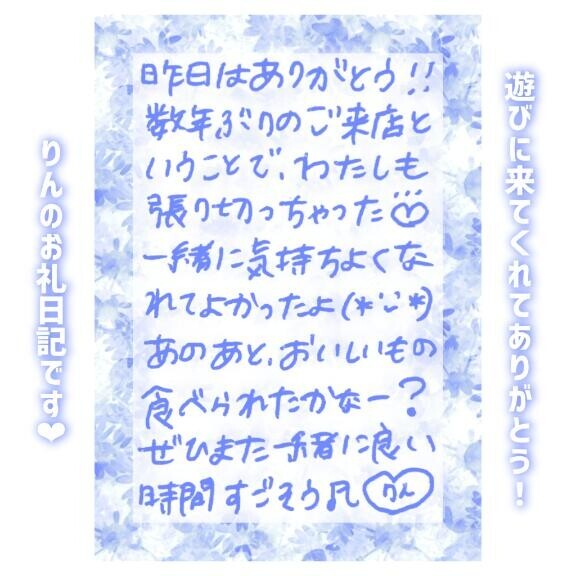 遊びに来てくれてありがとう!
昨日はありがとう!!
数年ぶりのご来店と
いうことで、わたしも
張り切っちゃった♡
一緒に気持ちよくな
れてよかったよ(*¨̮*)
あのあと、おいしいもの
食べられたかなー?
ぜひまた一緒に良い
時間すごそう♫ りん
りんのお礼日記です❤